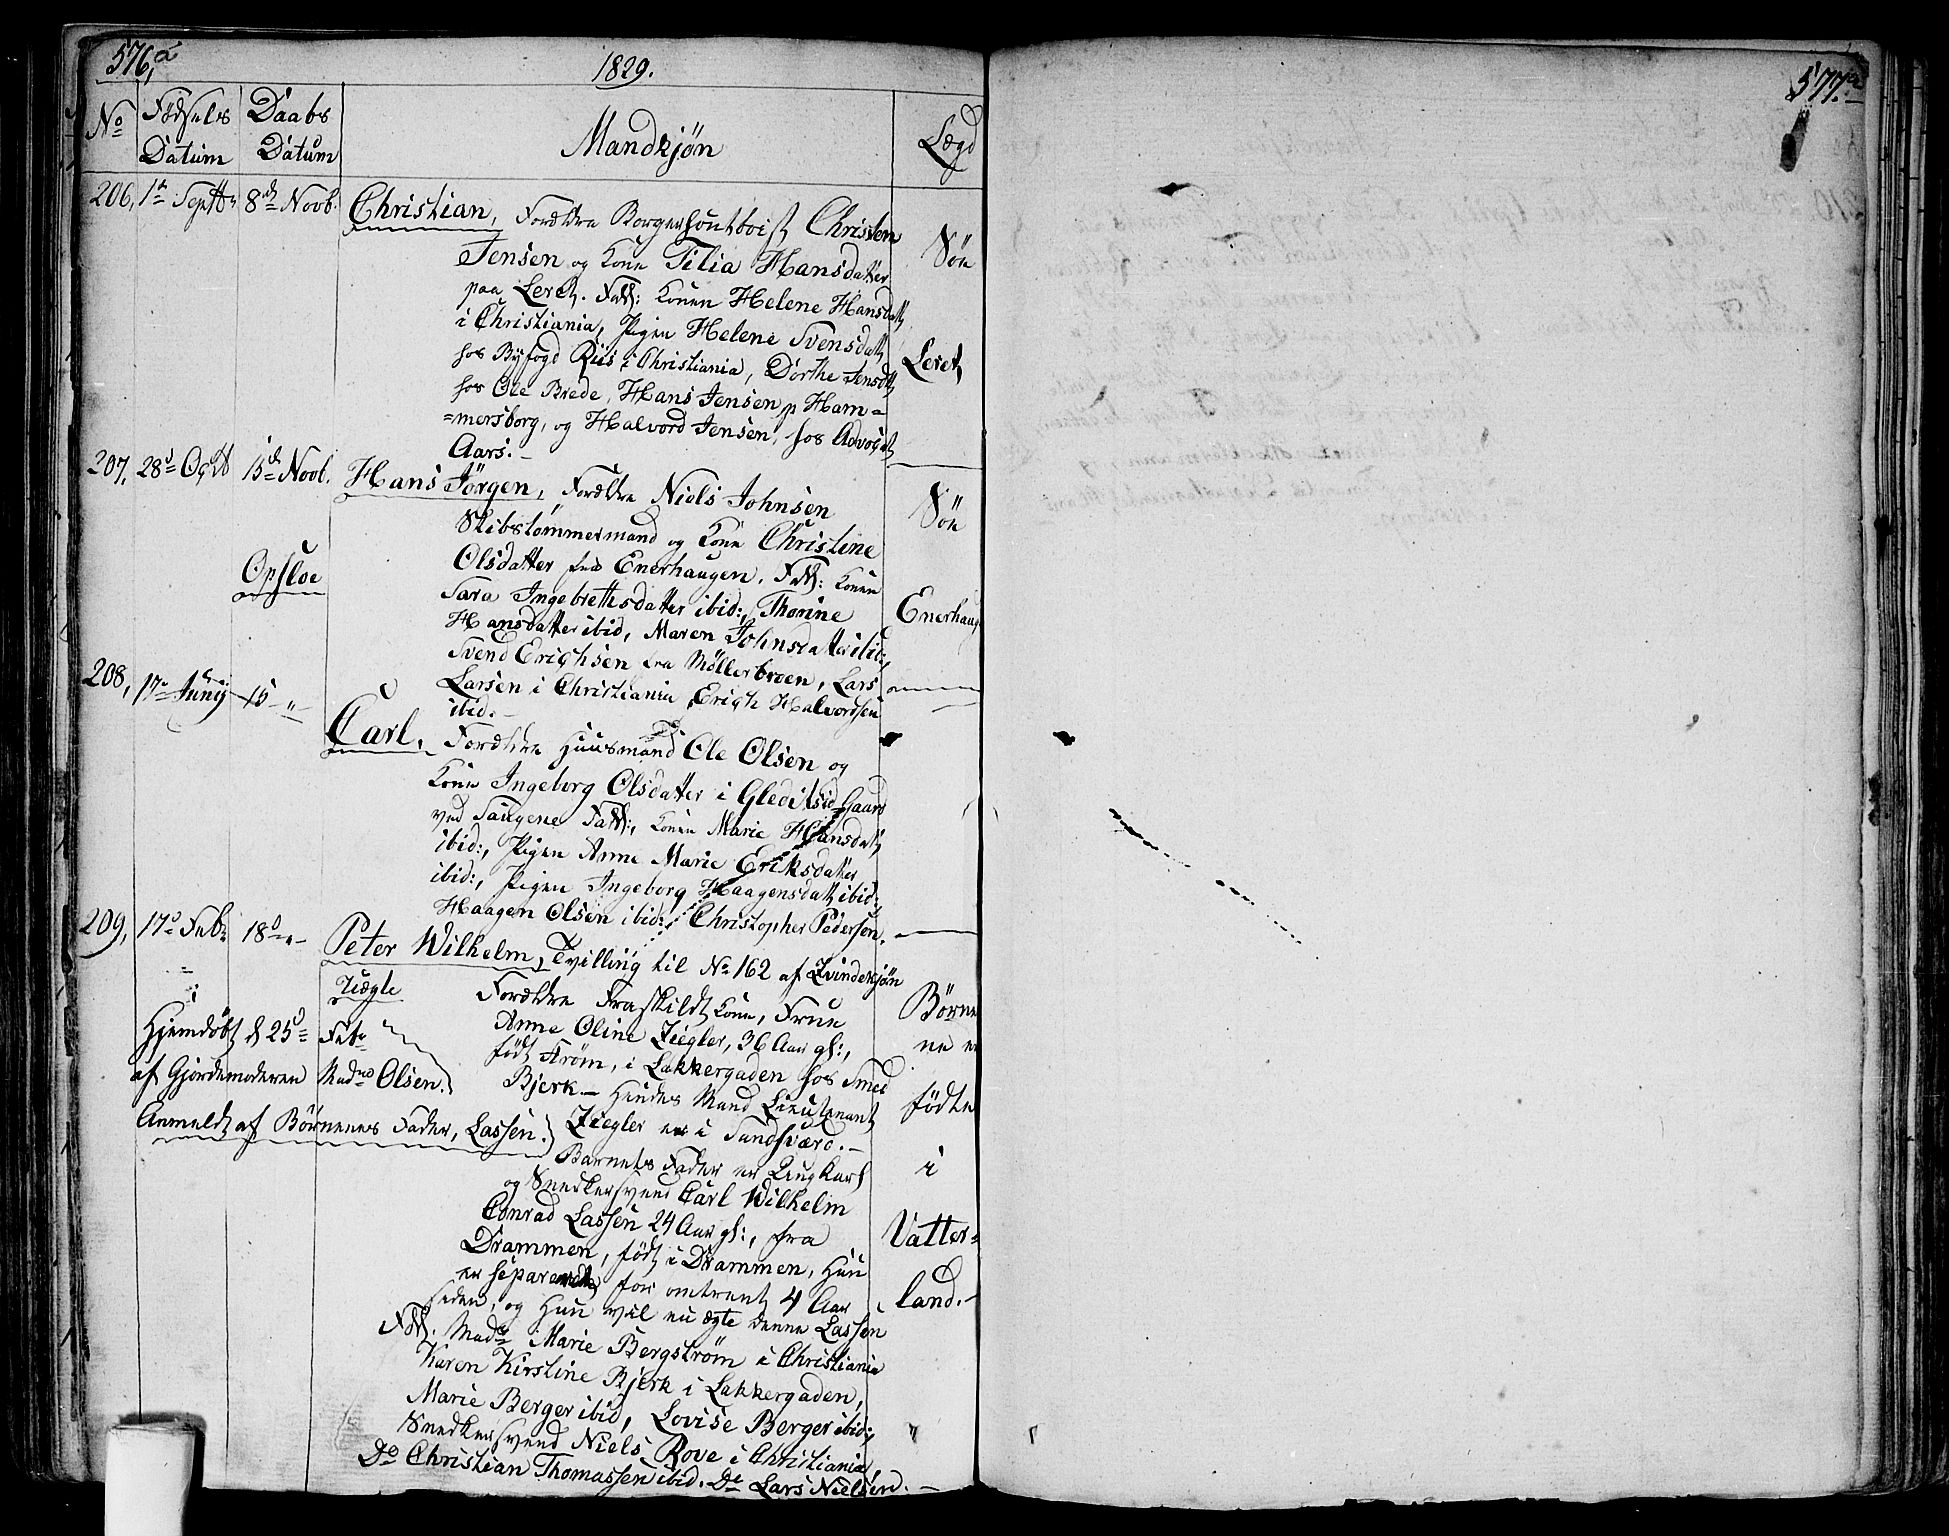 576,a
1829.
No Fødsels Datum Daabs Datum Mandkjøn Lægd
206, 1e Septbr 8de Novb. Christian, Forældre Borgerhoutboist Christen
Jensen og Kone Tilia Hansdatter Søn
paa Leret. Fadd: Konen Helene Hansdatt
i Christiania, Pigen Helene Svensdatt
hos Byfogd Riis i Christiania, Dorthe Jensdtt Leret,
hos Ole Brede, Hans Jensen p Ham=
=mersborg, og Halvord Jensen, hos Advocat
Aars.
207, 28d Octb 15de Novb. Hans Jörgen, Forældre Niels Johnsen Søn
Skibstømmermand og Kone Christine
Olsdatter fra Enerhaugen. Fadd: Konen
Opsloe
Sara Ingebrethsdatter ibid:, Thorine Enerhaug
Hansdatter ibid, Maren Johnsdatter ibid:,
Svend Erichsen fra Møllerbroen, Lars
Larsen i Christiania, Erich Halvorsen
ibid.
208, 17e Junij 15 - " - Carl, Forældre Huusmand Ole Olsen og
Kone Ingeborg Olsdatter i Gleditsch Gaard
ved Saugene Fadd:, Konen Marie Hansdatt
ibid:, Pigen Anne Marie Eriksdatter
ibid:, Pigen Ingeborg Haagensdatt ibid:,
Haagen Olsen ibid:, Christopher Pedersen.
209, 17d Febr 18d " - Peter Wilhelm, Tvilling til No 162 af Qvindekjøn
Uægte Forældre Fraskildt Kone, Frue Børne
Hjemdøbt d 25d Febr Anne Oline Ziegler, 36 Aar gl:, ne er
født Strøm, i Lakkergaden hos Smed
af Gjordemoderen Madme Olsen. Bjerk - Hendes Mand Lieutenant fødte
Anmeldt af Børnenes Fader, Lassen. Ziegler er i Sandsværd. -
Barnets Fader er Ungkarl i
og Snedkersvend Carl Wilhelm
Conrad Lassen 24 Aar gl:, fra Vatter=
Drammen, født i Drammen, Hun
er separeret for omtrent 4 Aar land. -
siden, og Hun vil nu ægte denne Lassen
Fadd. Made Marie Bergstrøm i Christiania
Karen Kirstine Bjerk i Lakkergaden,
Marie Berger ibid, Lovise Berger ibid:,
Snedkersvend Niels Rove i Christiania,
Do Christian Thomassen ibid. Do Lars Nielsen. -
577.a